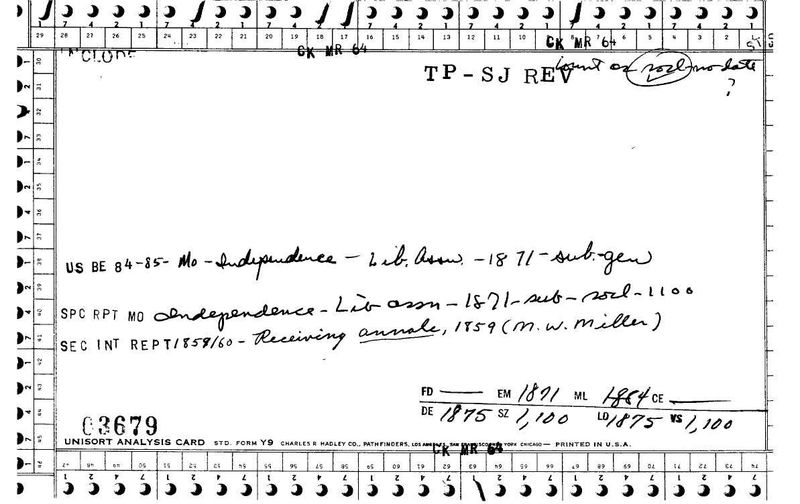 29 28 27 26 25 24 23 22 21 20 19 18 17 16 15 14 13 12 11 10 9 8 7 6 5 4 3 2 1
CK MR 64 CK MR 64
TP-SJ REV
count as socl-no date
?
US BE 84-85- Mo - Independence - Lib. Assn. - 1871 - sub-gen
SPC RPT MO Independence - Lib assn - 1871 - sub - socl - 1100
SEC INT REPT 1859/60 - Receiving annals, 1859 (M. W. Miller)
FD — EM 1871 ML 1884 CE —
DE 1875 SZ 1,100 LD 1875 VS 1,100
03679
UNISORT ANALYSIS CARD STD. FORM Y9 CHARLES R HADLEY CO., PATHFINDERS, LOS ANGELES, SAN FRANCISCO YORK CHICAGO — PRINTED IN U.S.A.
CK MR 64